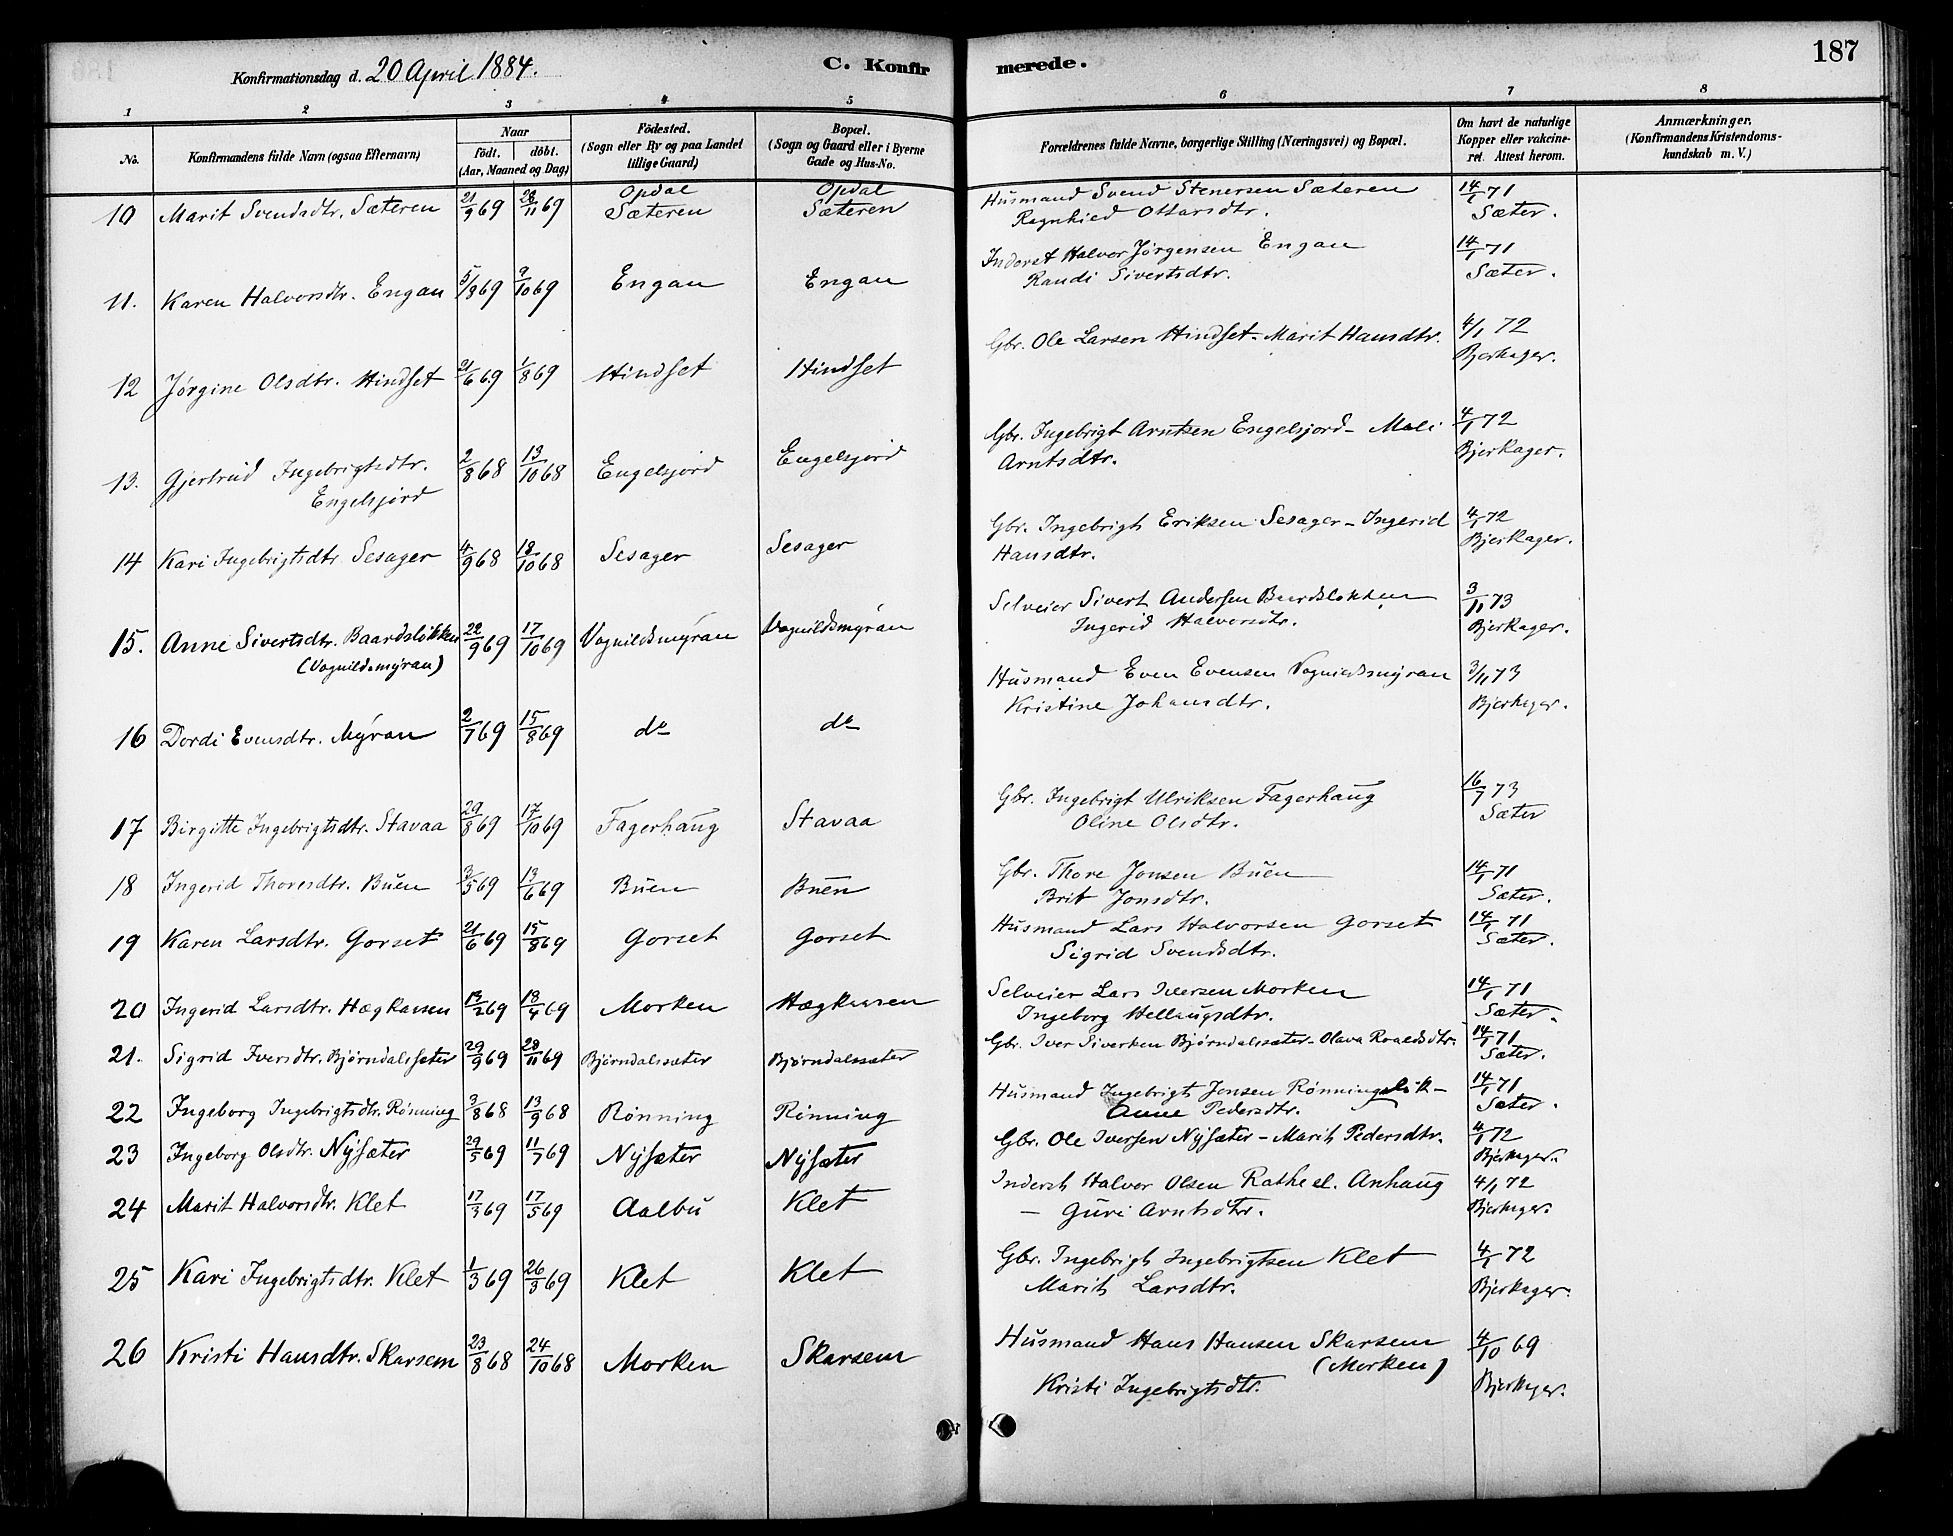 187
Konfirmationsdag d. 20 April 1884. C. Konfirmerede.
1 2 3 4 5 6 7 8
No. Konfirmandens fulde Navn (ogsaa Efternavn) Naar födt. döbt. (Aar, Maaned og Dag) Födested. (Sogn eller By og paa Landet tillige Gaard) Bopæl. (Sogn og Gaard eller i Byerne Gade og Hus-No. Forældrenes fulde Navne, borgerlige Stilling (Næringsvei) og Bopæl. Om havt de naturlige Kopper eller vakcineret. Attest herom. Anmærkninger. (Konfirmandens Kristendomskundskab m. V.)
10 Marit Svendsdtr. Sæteren 21/9 69 28/11 69 Opdal Sæteren Opdal Sæteren Husmand Svend Stenersen Sæteren 14/1 71
Ragnhied Ottarsdtr. Sæter.
11. Karen Halvorsdtr. Engan 5/8 69 9/10 69 Engan Engan Inderst Halvor Jørgensen Engan 14/1 71
Randi Sivertsdtr. Sæter.
12 Jørgine Olsdtr. Hindset 21/6 69 1/8 69 Hindset Hindset Gbr. Ole Larsen Hindset - Marit Hansdtr. 4/1 72
Bjerkager.
13. Gjertrud Ingebrigtsdtr. 2/8 68 13/10 68 Engelsjord Engelsjord Gbr. Ingebrigt Arntsen Engelsjord - Mali 4/1 72
Engelsjord Arntsdtr. Bjerkager.
14 Kari Ingebrigtsdtr Sesager 4/9 68 18/10 68 Sesager Sesager Gbr. Ingebrigt Eriksen Sesager - Ingerid 4/1 72
Hansdtr. Bjerkager.
15. Anne Sivertsdtr. Baardsløkken 22/9 69 17/10 69 Vognildsmyran Vognildsmyran Selveier Sivert Andersen Baardsløkken 3/11 73
(Vognildsmyran) Ingerid Halvorsdtr. Bjerkager.
16 Dordi Evensdtr. Myran 2/7 69 15/8 69 do do Husmand Even Evensen Vognildsmyran 3/11 73
Kristine Johansdtr. Bjerkager.
17 Birgitte Ingebrigtsdtr. Stavaa 29/8 69 17/10 69 Fagerhaug Stavaa Gbr. Ingebrigt Ulriksen Fagerhaug 16/7 73
Oline Olsdtr. Sæter
18 Ingerid Thoresdtr. Buen 3/5 69 13/6 69 Buen Buen Gbr. Thore Jonsen Buen 14/1 71
Brit Jonsdtr. Sæter.
19 Karen Larsdtr. Gorset 21/6 69 15/8 69 Gorset Gorset Husmand Lars Halvorsen Gorset 14/1 71
Sigrid Svendsdtr. Sæter.
20 Ingerid Larsdtr. Hægkansen 18/4 69 Morken Selveier Lars Iversen Morken 14/1 71
Ingeborg Hellaugsdtr. Sæter.
21. Sigrid Iversdtr. Bjørndalssæter 29/9 69 28/11 69 Bjørndalssæter Bjørndalssæter Gbr. Iver Bjørndalssæter - Olava Roaldsdtr. 14/1 71
Sæter.
22 Ingeborg Ingebrigtsdtr. Rønning 3/8 68 13/9 68 Rønning Rønning Husmand Ingebrigt Jonsen Rønningsløk - 14/1 71
Anne Pedersdtr. Sæter.
23 Ingeborg Olsdtr. Nysæter 29/5 69 11/7 69 Nysæter Nysæter Gbr. Ole Iversen Nysæter - Marit Pedersdtr. 4/1 72
Bjerkager.
24 Marit Halvorsdtr. Klet 17/3 69 17/5 69 Aalbu Klet Inderst Halvor Olsen Rathe el. Anhaug 4/1 72
- Guri Arntsdtr. Bjerkager.
25 Kari Ingebrigtsdtr. Klet 1/3 69 26/3 69 Klet Klet Gbr. Ingebrigt Ingebrigtsen Klet 4/1 72
Marit Larsdtr. Bjerkager.
26 Kristi Hansdtr. Skarsem 23/8 68 24/10 68 Morken Skarsem Husmand Hans Hansen Skarsem 4/10 69
(Morken)
Kristi Ingebrigtsdtr. Bjerkager.